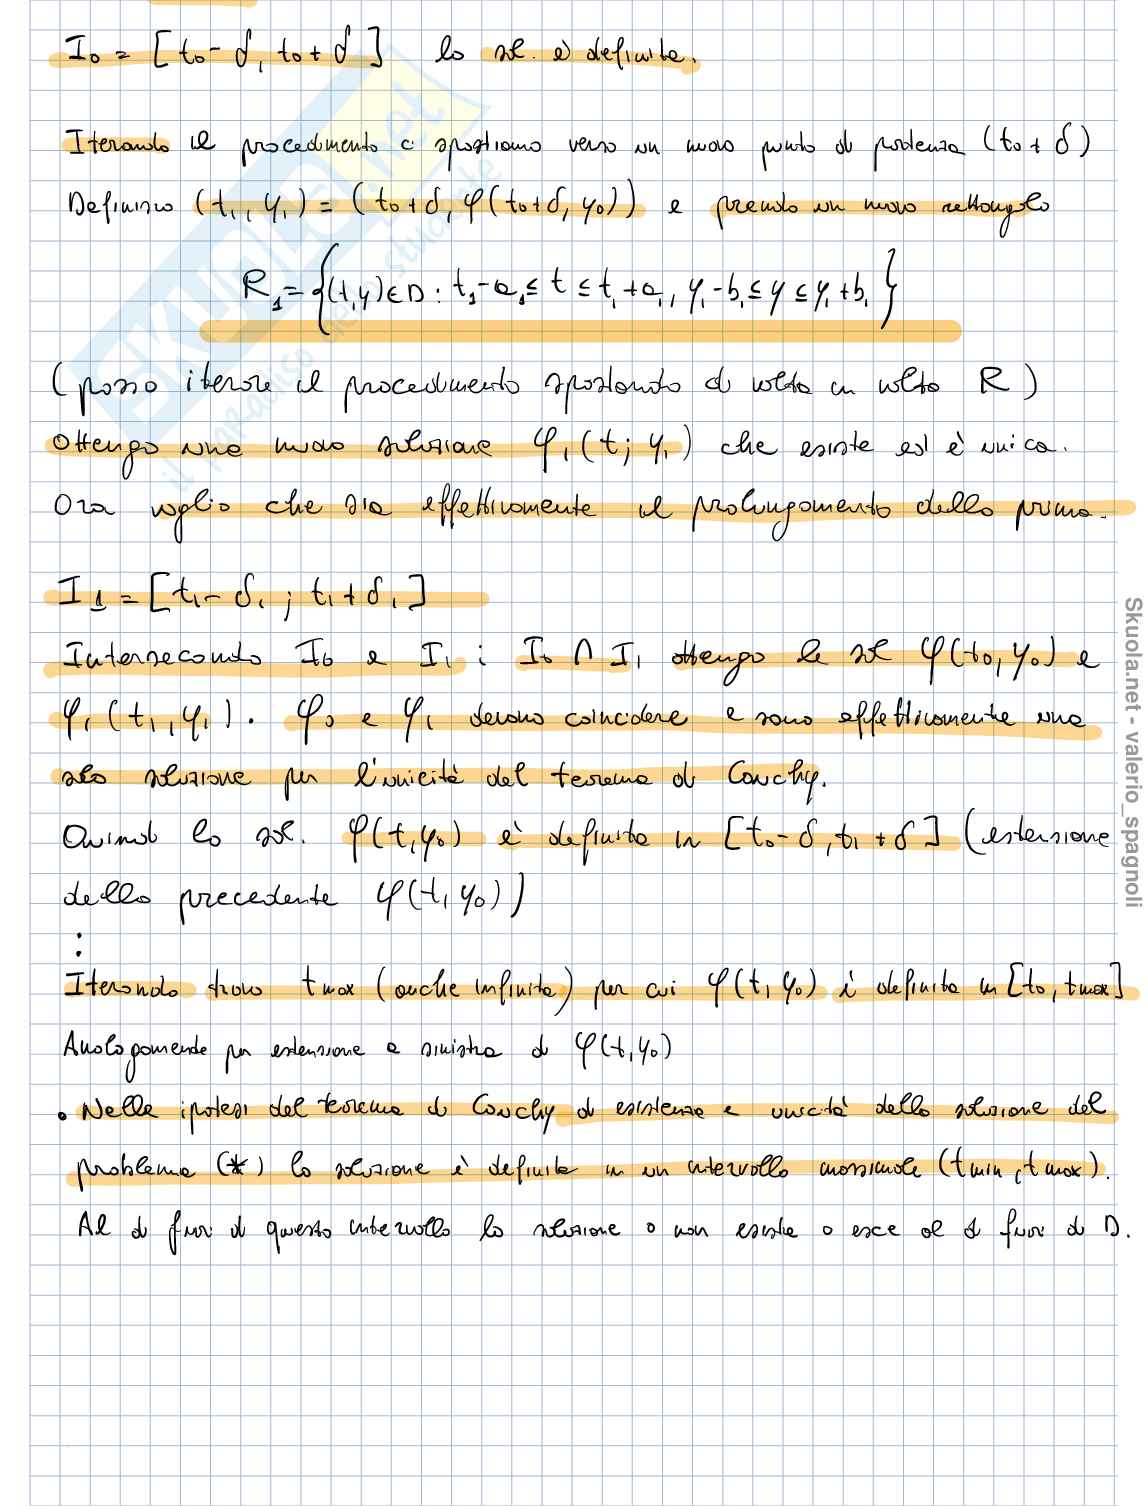 I₀ = [t₀ - δ, t₀ + δ] la sol. è definita.
Iterando il procedimento ci spostiamo verso un nuovo punto di partenza (t₀ + δ)
Definisco (t₁, y₁) = (t₀+δ, φ(t₀+δ, y₀)) e prendo un nuovo rettangolo
R₁ = {(t,y) ∈ D : t₁-a₁ ≤ t ≤ t₁+a₁, y₁-b₁ ≤ y ≤ y₁+b₁}
(posso iterare il procedimento spostando di volta in volta R)
Ottengo una nuova soluzione φ₁(t; y₁) che esiste ed è unica.
Ora voglio che sia effettivamente il prolungamento della prima.
I₁ = [t₁ - δ₁ ; t₁ + δ₁]
Intersecando I₀ e I₁ : I₀ ∩ I₁ ottengo le sol φ(t₀, y₀) e
φ₁(t₁, y₁). φ₀ e φ₁ devono coincidere e sono effettivamente una
sola soluzione per l'unicità del teorema di Cauchy.
Quindi la sol. φ(t, y₀) è definita in [t₀ - δ, t₁ + δ] (estensione
della precedente φ(t, y₀))
:
Iterando trovo t max (anche infinito) per cui φ(t, y₀) è definita in [t₀, t max]
Analogamente per estensione a sinistra di φ(t, y₀)
• Nelle ipotesi del teorema di Cauchy di esistenza e unicità della soluzione del
problema (*) la soluzione è definita in un intervallo massimale (t min, t max).
Al di fuori di questo intervallo la soluzione o non esiste o esce al di fuori di D.
SKUOLA.net
il paradiso dello studente
Skuola.net - valerio_spagnoli